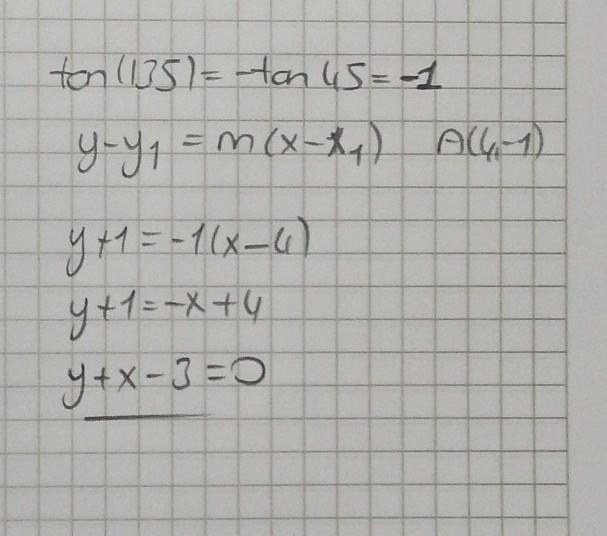 tan(135)= -tan 45 = -1
y-y₁ = m(x-x₁) A(4,-1)
y+1 = -1(x-4)
y+1 = -x+4
y+x-3=0